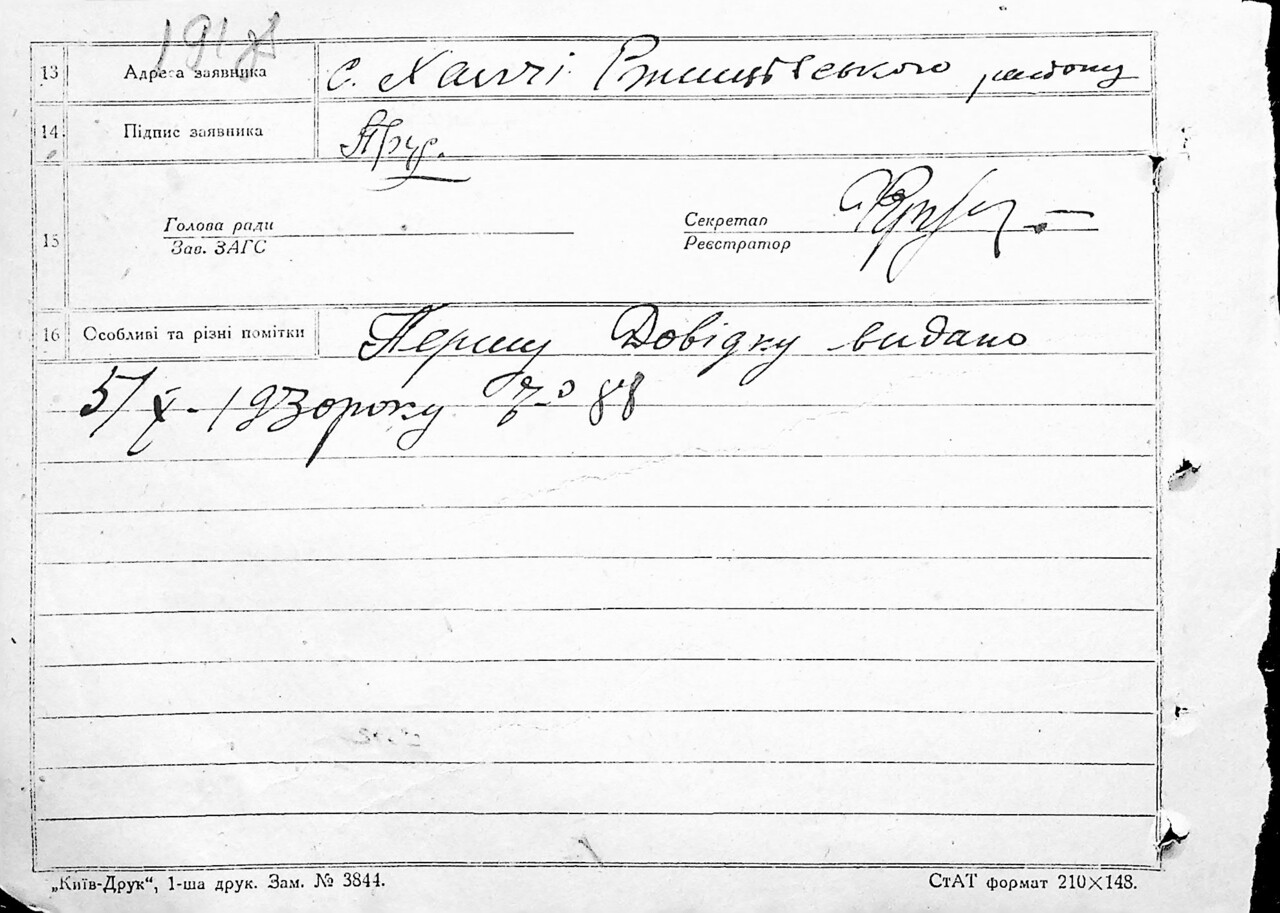 13 Адреса заявника с. Халчі Ржищівського району
14. Підпис заявника Прус.
Голова ради Секретар
15
Зав. ЗАГС Реєстратор
16 Особливі та різні помітки Першу Довідку видано
5/X - 1930 року № 88
„Київ-Друк“, 1-ша друк. Зам. № 3844. СтАТ формат 210×148.